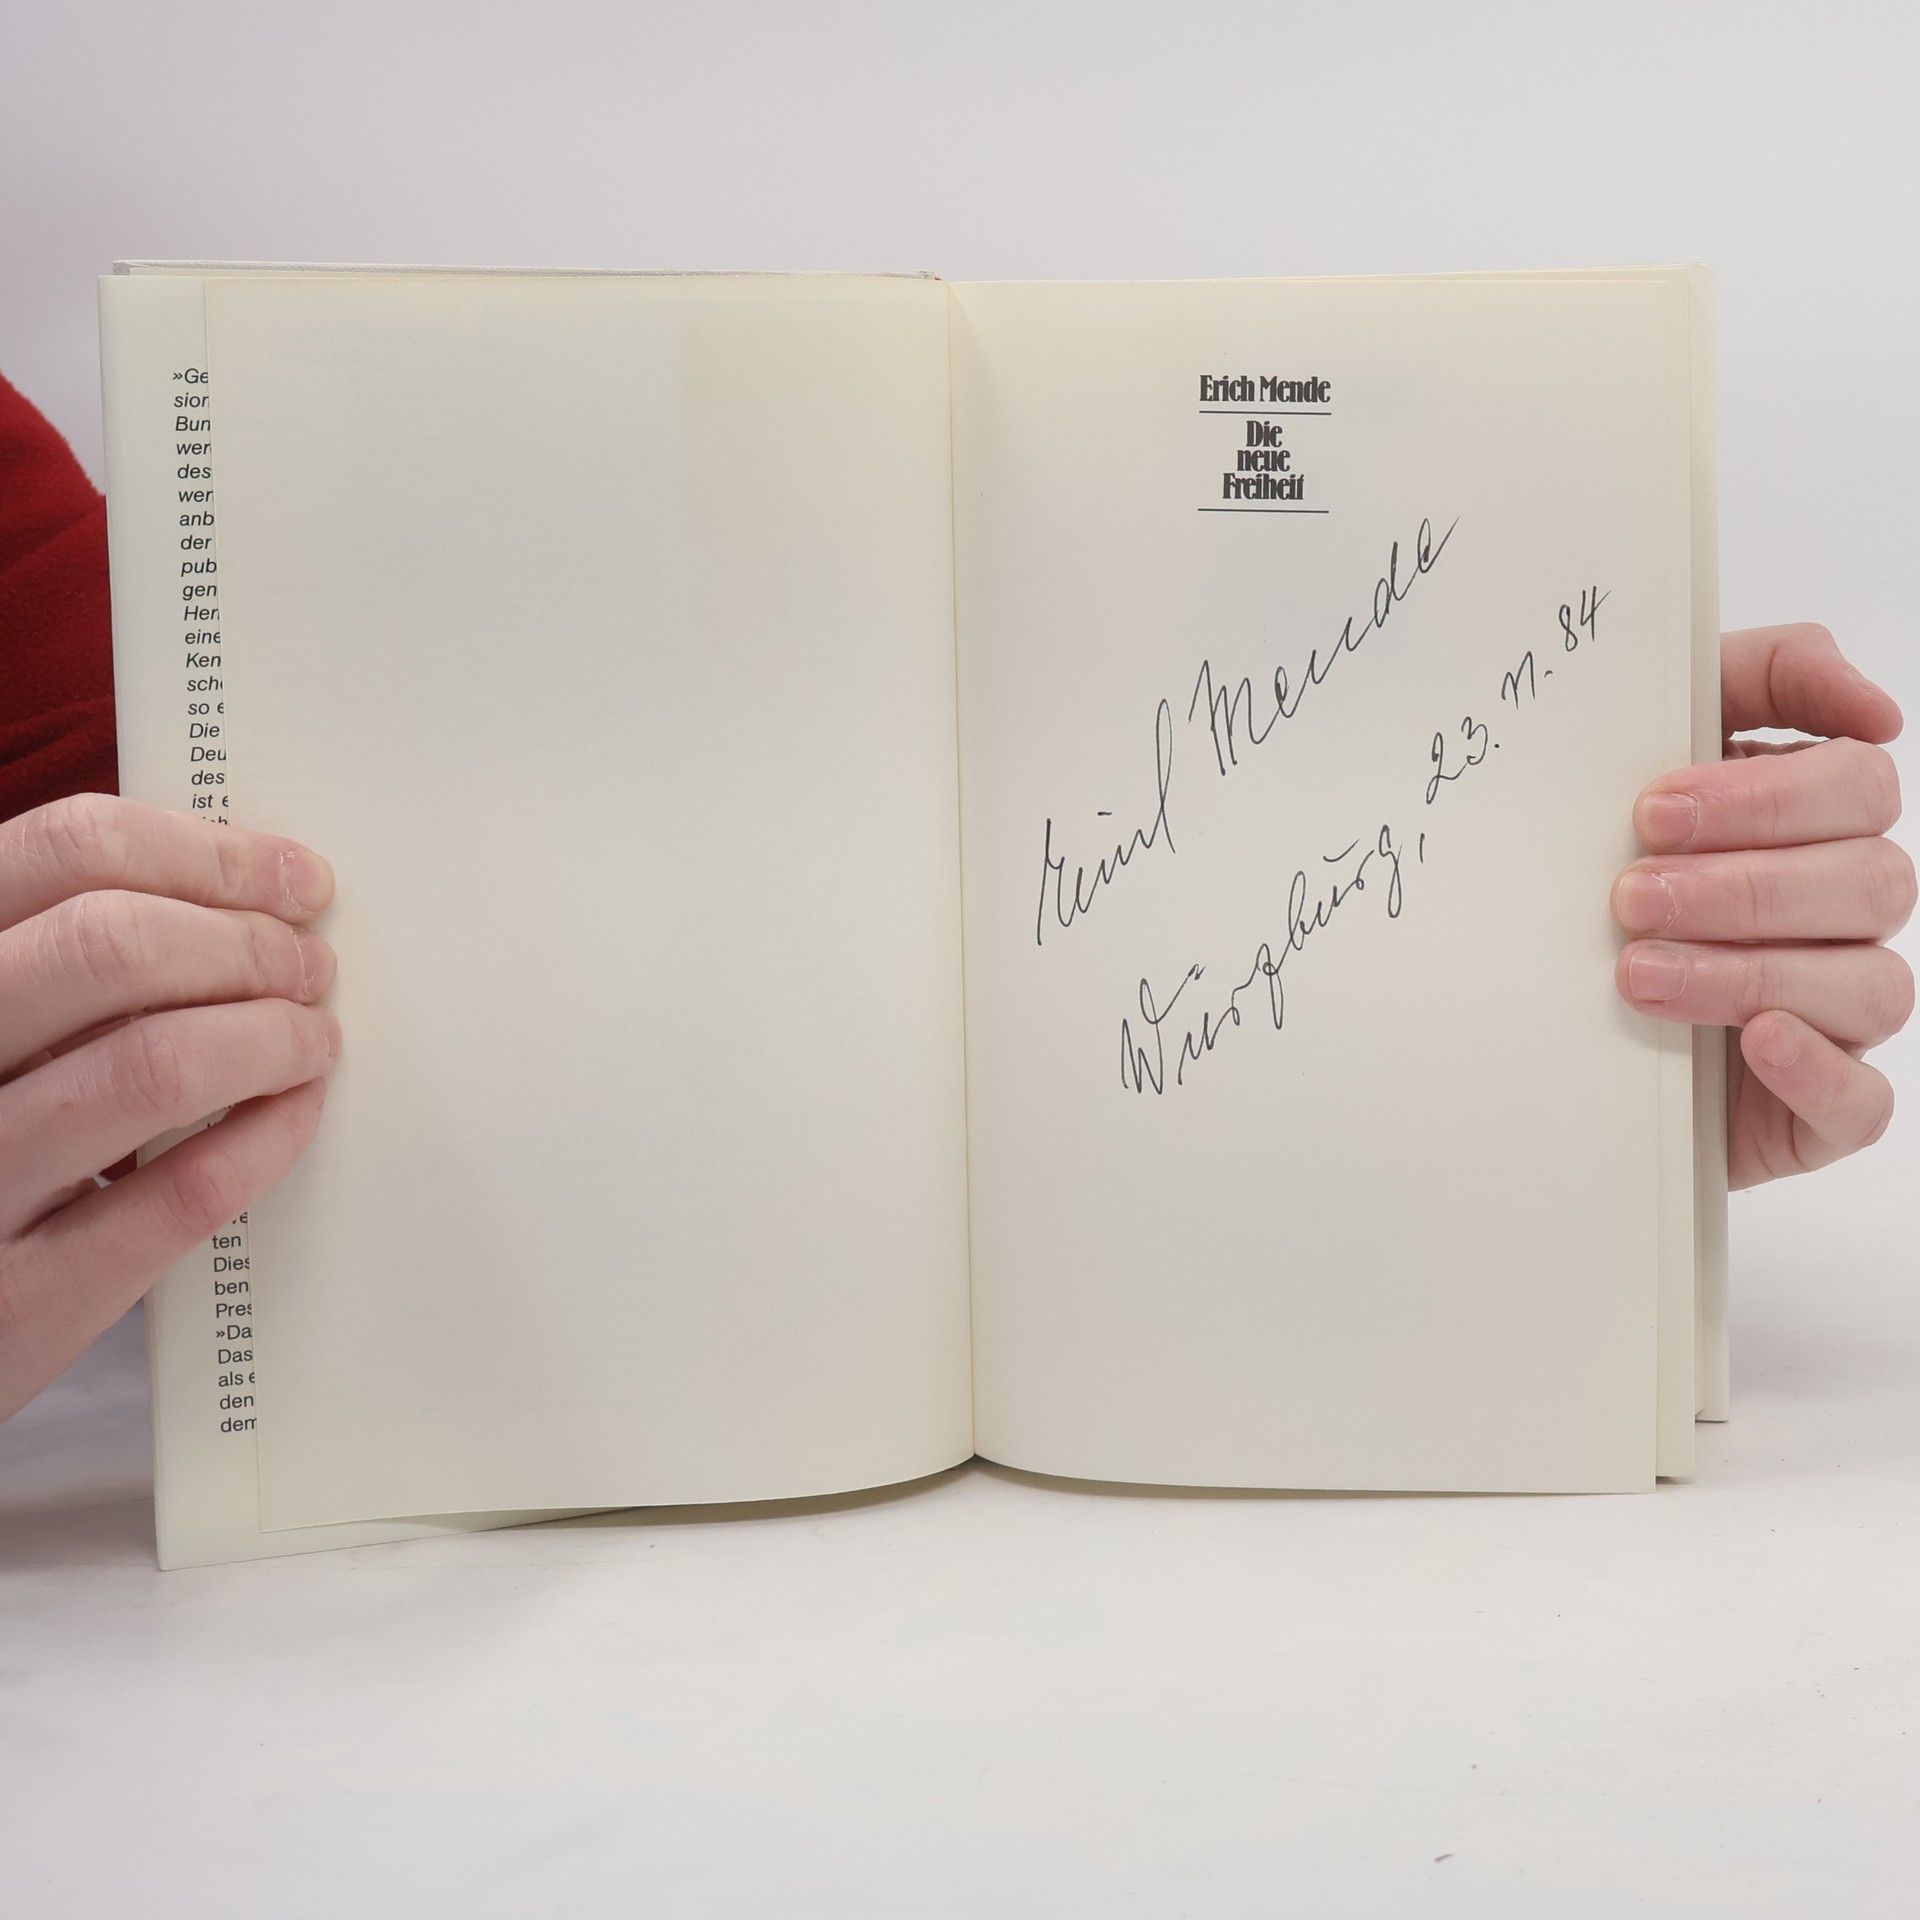 »Ge
sion
Bun
wer
des
wer
anb
der
pub
gen
Her
eine
Ken
sch
so e
Die
Deu
des
ist e
ten
Dies
ben
Pres
»Da
Das
als e
den
dem
Erich Mende
Die
neue
Freiheit
Erich Mende
Würzburg, 23. 84